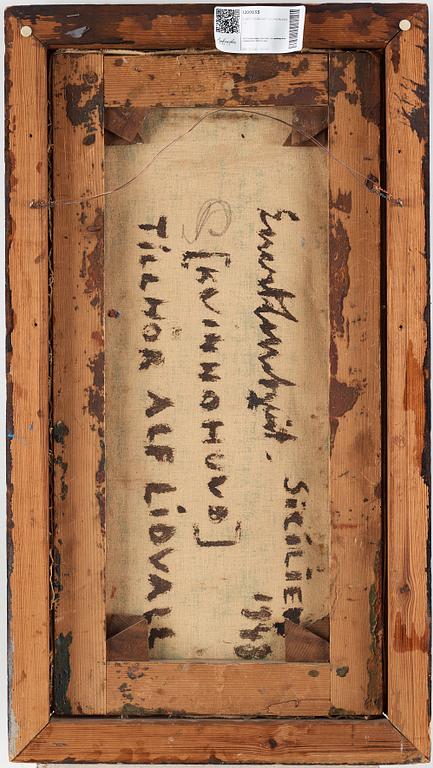 Evert Lundquist.
SICILIEN
1948
S [KVINNOHUVUD]
TILLHÖR ALF LIDVALL